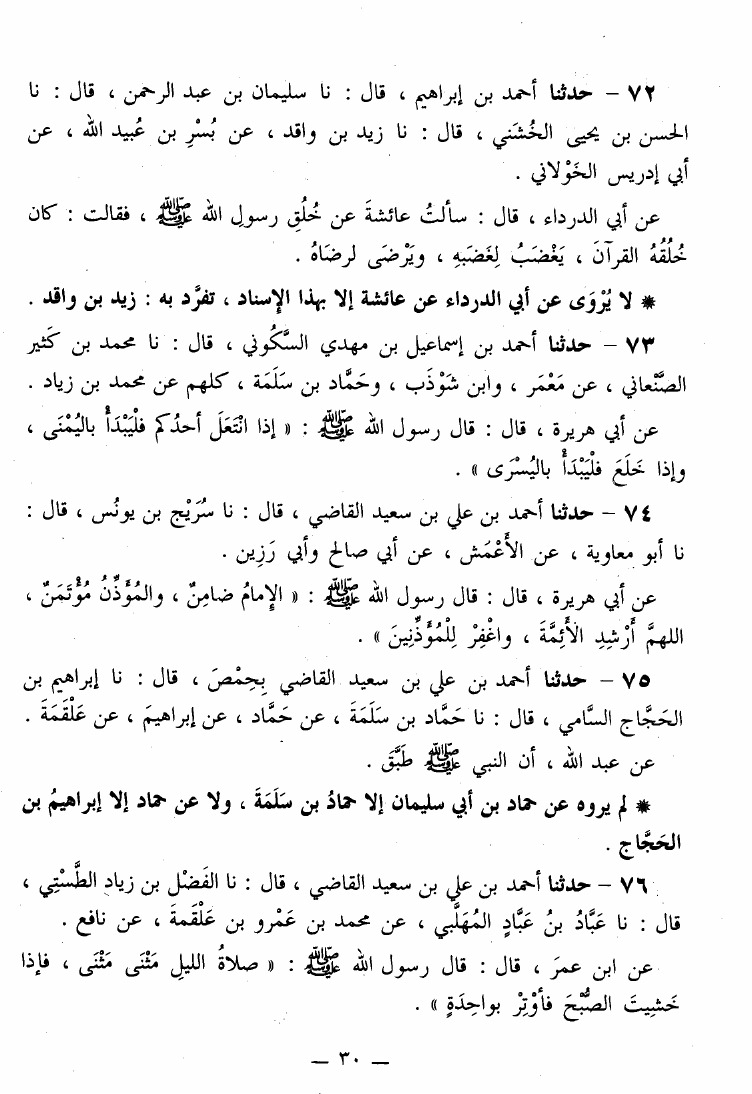 ٧٢ – حدثنا أحمد بن إبراهيم ، قال : نا سليمان بن عبد الرحمن ، قال : نا
الحسن بن يحيى الخُشَني ، قال : نا زيد بن واقد ، عن بُسْرِ بن عُبيد الله ، عن
أبي إدريس الخَوْلاني .
عن أبي الدرداء ، قال : سألتُ عائشةَ عن خُلُقِ رسولِ الله ﷺ ، فقالت : كان
خُلُقُهُ القرآنَ ، يَغْضَبُ لِغَضَبِهِ ، ويَرْضَى لرضَاهُ .
* لا يُرْوَى عن أبي الدرداء عن عائشة إلا بهذا الإسناد ، تفرَّد به : زيد بن واقد .
٧٣ – حدثنا أحمد بن إسماعيل بن مهدي السَّكُوني ، قال : نا محمد بن كَثير
الصَّنْعاني ، عن مَعْمَر ، وابن شَوْذَب ، وحَمَّاد بن سَلَمَة ، كلهم عن محمد بن زياد .
عن أبي هريرة ، قال : قال رسول الله ﷺ : « إذا انْتَعَلَ أحدُكم فلْيَبْدَأْ باليُمْنَى ،
وإذا خَلَعَ فلْيَبْدَأْ باليُسْرَى » .
٧٤ – حدثنا أحمد بن علي بن سعيد القاضي ، قال : نا سُرَيْج بن يونُس ، قال :
نا أبو معاوية ، عن الأَعْمَش ، عن أبي صالح وأبي رَزِين .
عن أبي هريرة ، قال : قال رسول الله ﷺ : « الإمامُ ضامِنٌ ، والمُؤَذِّنُ مُؤْتَمَنٌ ،
اللهمَّ أَرْشِدِ الأَئِمَّةَ ، واغْفِرْ لِلْمُؤَذِّنِينَ » .
٧٥ – حدثنا أحمد بن علي بن سعيد القاضي بِحِمْصَ ، قال : نا إبراهيم بن
الحَجَّاج السَّامي ، قال : نا حَمَّاد بن سَلَمَةَ ، عن حَمَّاد ، عن إبراهيمَ ، عن عَلْقَمَةَ .
عن عبد الله ، أن النبي ﷺ طَبَّقَ .
* لم يروه عن حماد بن أبي سليمان إلا حمادُ بن سَلَمَةَ ، ولا عن حماد إلا إبراهيمُ بن
الحَجَّاج .
٧٦ – حدثنا أحمد بن علي بن سعيد القاضي ، قال : نا الفَضْل بن زيادِ الطَّسْتِي ،
قال : نا عَبَّادُ بنُ عَبَّادٍ المُهَلَّبي ، عن محمد بن عَمْرو بن عَلْقمةَ ، عن نافع .
عن ابن عمرَ ، قال : قال رسول الله ﷺ : « صلاةُ الليلِ مَثْنَى مَثْنَى ، فإذا
خَشيتَ الصُّبْحَ فأوْتِرْ بواحِدَةٍ » .
– ٣٠ –